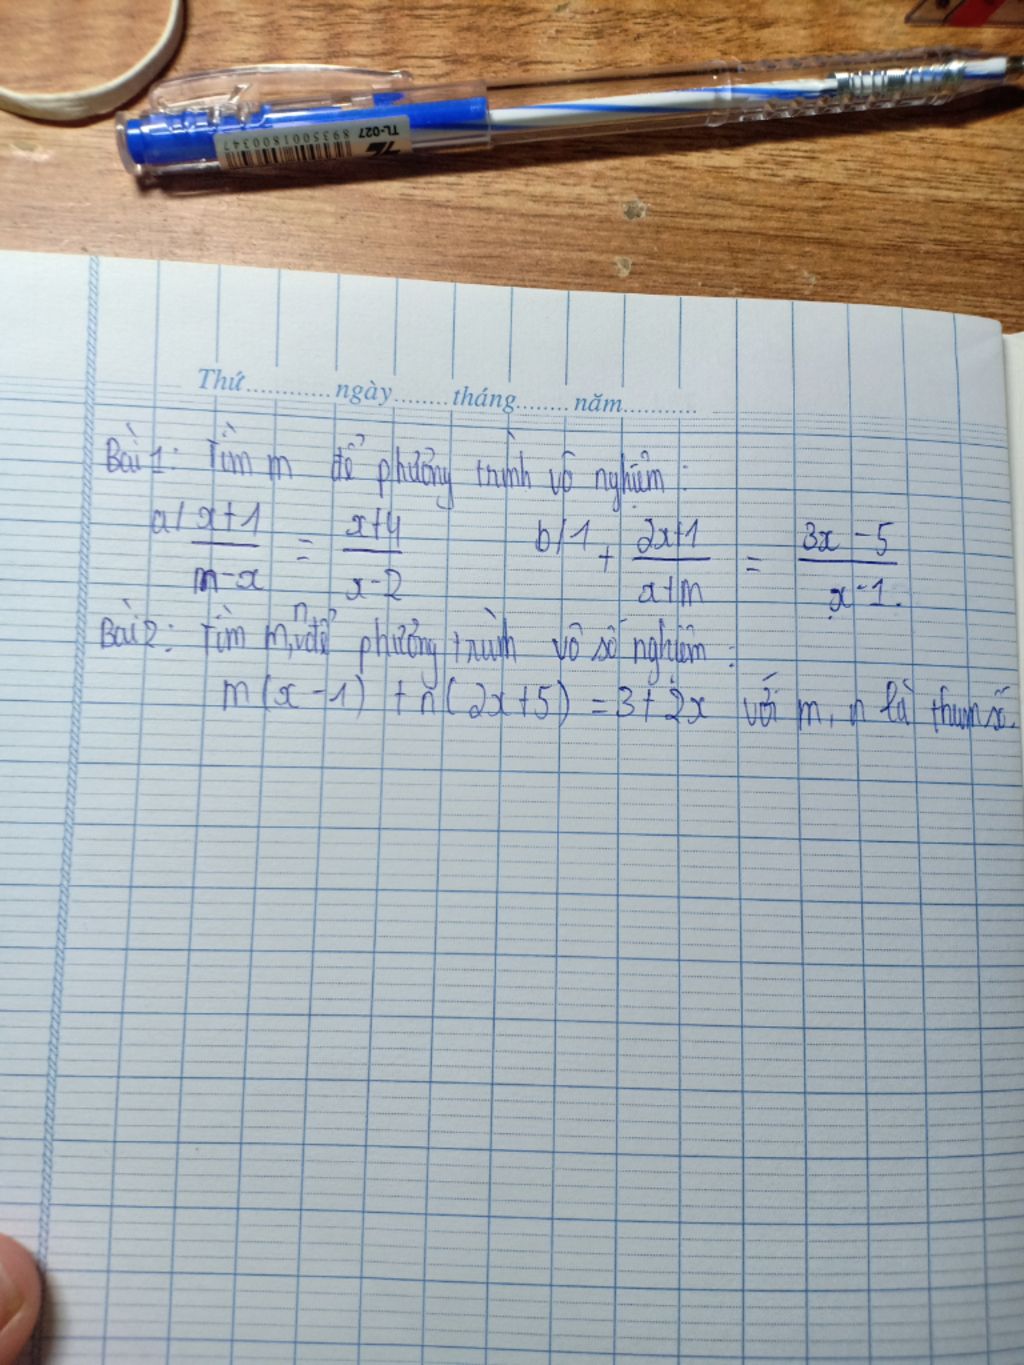 TL-027
8935001800347
Thứ............ngày........tháng........năm...........
Bài 1: Tìm m để phương trình vô nghiệm:
a/ x+1 / m-x = x+4 / x-2    b/ 1 + 2x+1 / x+m = 3x-5 / x-1.
Bài 2: Tìm m, n để phương trình vô số nghiệm:
m(x-1) + n(2x+5) = 3+2x với m, n là tham số.